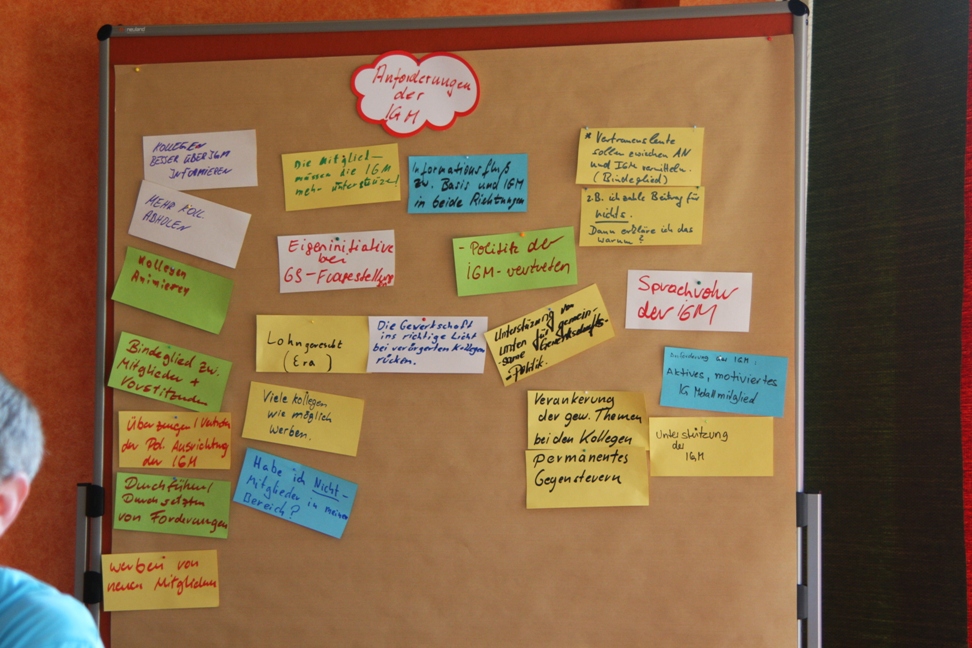 neuland
Anforderungen
der
IGM
KOLLEGEN
BESSER ÜBER IGM
INFORMIEREN
MEHR KOLL.
ABHOLEN
Kollegen
Animieren
Bindeglied zw.
Mitglieder +
Vorsitzenden
Überzeugen /
der Pol. Ausrichtung
der IGM
Durchführen/
Durchsetzen
von Forderungen
werben von
neuen Mitgliedern
Die Mitglied-
müssen die IGM
mehr unterstützen!
Eigeninitiative
bei
GS-
Lohngerecht
(Era)
Die Gewerkschaft
ins richtige Licht
bei verärgerten Kollegen
rücken.
Viele Kollegen
wie möglich
werben.
Habe ich Nicht-
Mitglieder in meinem
Bereich?
Informationsfluß
zw. Basis und IGM
in beide Richtungen
- Politik der
IGM-vertreten
Unterstützung von
unten für gemein-
same Gewerkschafts-
-Politik.
* Vertrauensleute
sollen zwischen AN
und IGM vermitteln.
(Bindeglied)
z.B. ich zahle Beitrag für
nichts.
Dann erkläre ich das
warum?
Sprachrohr
der IGM
Anforderung der IGM:
Aktives, motiviertes
IG Metallmitglied
Verankerung
der gew. Themen
bei den Kollegen
Permanentes
Gegensteuern
Unterstützung
der
IGM